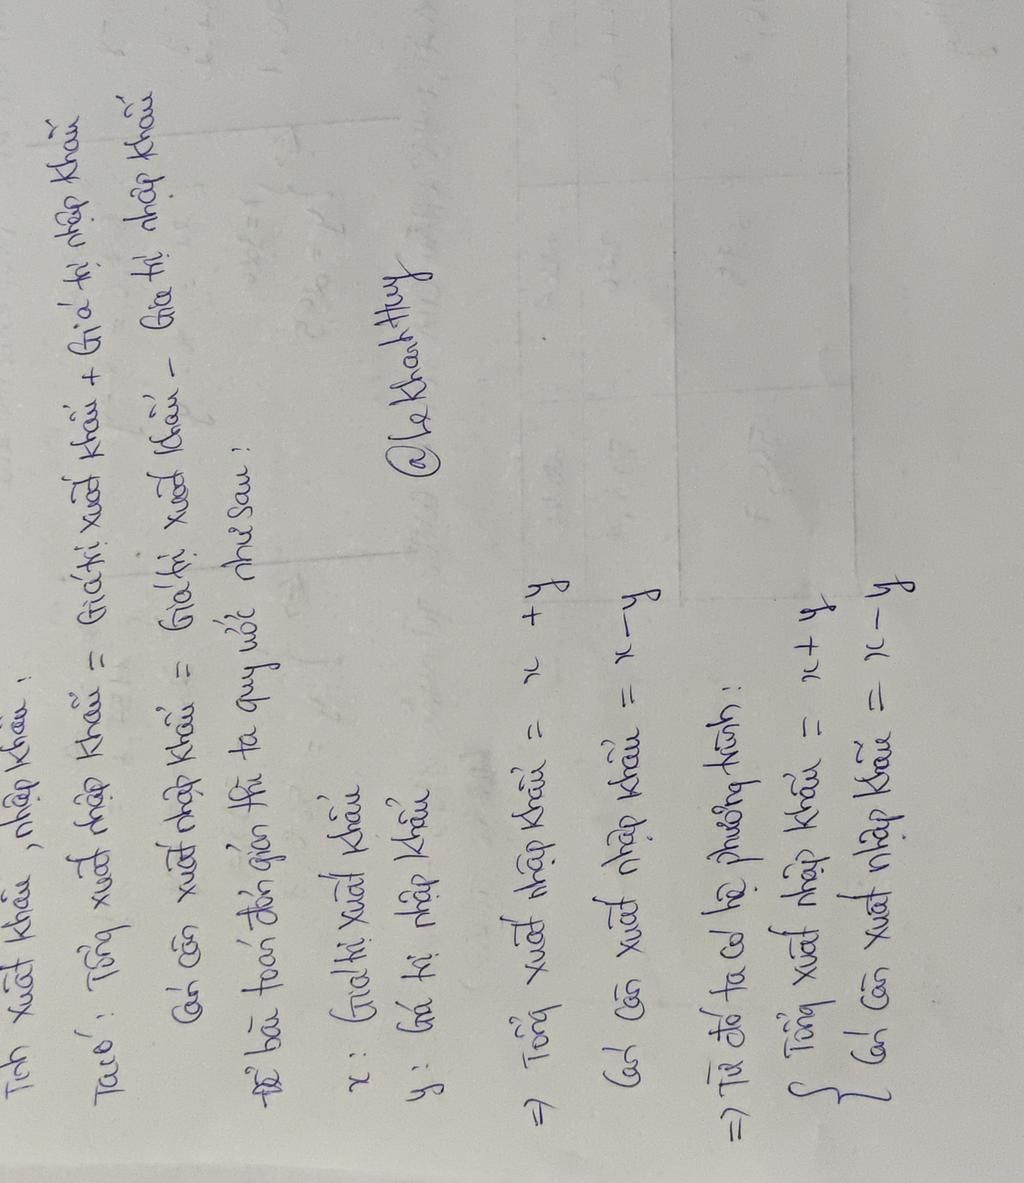 Tính xuất khẩu, nhập khẩu:
Ta có: Tổng xuất nhập khẩu = Giá trị xuất khẩu + Giá trị nhập khẩu
Cán cân xuất nhập khẩu = Giá trị xuất khẩu - Giá trị nhập khẩu
Để bài toán đơn giản thì ta quy ước như sau:
x: Giá trị xuất khẩu
y: Giá trị nhập khẩu
@LeKhanhHuy
=> Tổng xuất nhập khẩu = x + y
Cán cân xuất nhập khẩu = x - y
=> Từ đó ta có hệ phương trình:
{ Tổng xuất nhập khẩu = x + y
{ Cán cân xuất nhập khẩu = x - y